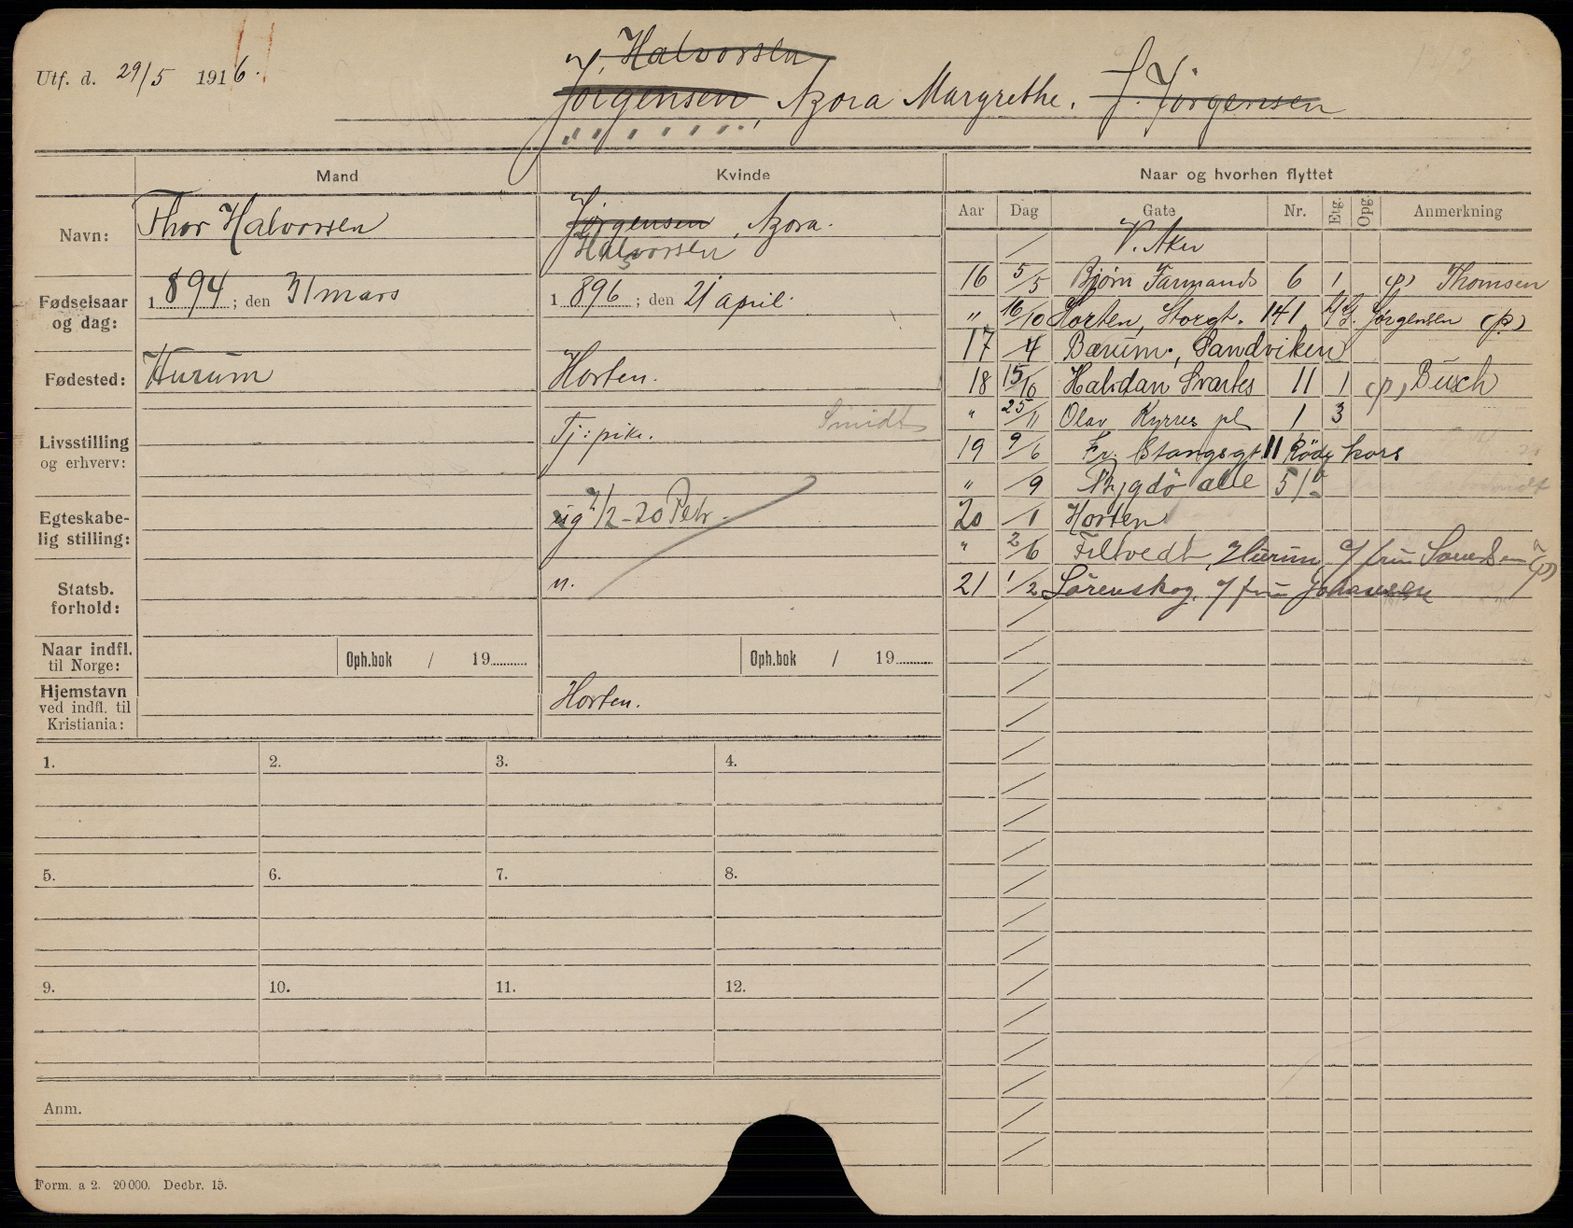 Utf. d. 29/5 1916.
J. Halvorsen
Jørgensen, Azora Margrethe. f. Jørgensen
Mand
Kvinde
Naar og hvorhen flyttet
Aar Dag Gate Nr. Etg. Opg. Anmerkning
Navn: Thor Halvorsen
Jørgensen, Azora.
Halvorsen
Fødselsaar og dag: 1894; den 31 mars
1896; den 21 april.
Fødested: Hurum
Horten.
Livsstilling og erhverv:
Tj: pike. Smidt
Egteskabelig stilling:
ug 7/2-20 Petr.
Statsb. forhold:
n.
Naar indfl. til Norge: Oph.bok / 19
Oph.bok / 19
Hjemstavn ved indfl. til Kristiania:
Horten.
/ V. Aker
16 5/5 Bjørn Farmands 6 1 (p) Thomsen
" 16/10 Horten, Storgt. 141 Jørgensen (p)
17 /4 Bærum, Sandviken
18 15/10 Halvdan Svartes 11 1 (p) Busch
" 25/11 Olav Kyrres pl 1 3
19 9/6 Fr. Stangsgt 11 Røde kors
" /9 Bygdö alle 51
20 /1 Horten
" 2/6 Filtvedt, Hurum c/ fru (p)
21 1/2 Sörenskog, c/ fru Johansen
1. 2. 3. 4.
5. 6. 7. 8.
9. 10. 11. 12.
Anm.
Form. a 2. 20 000. Decbr. 15.